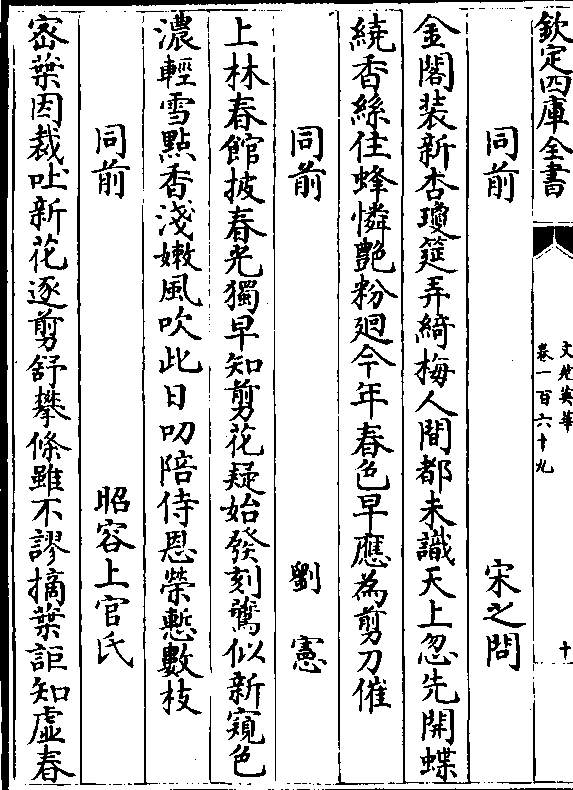 欽定四庫全書
文苑英華
卷一百六十九
十
同前 宋之問
金閣装新杏瓊筵弄綺梅人間都未識天上忽先開蝶
繞香絲住蜂憐艷粉廻今年春色早應為剪刀催
同前 劉憲
上林春館披春光獨早知剪花疑始發刻鷰似新窺色
濃輕雪點香淺嫩風吹此日叨陪侍恩榮慙數枝
同前 昭容上官氏
宻葉因裁吐新花逐剪舒攀條雖不謬摘葉詎知虛春